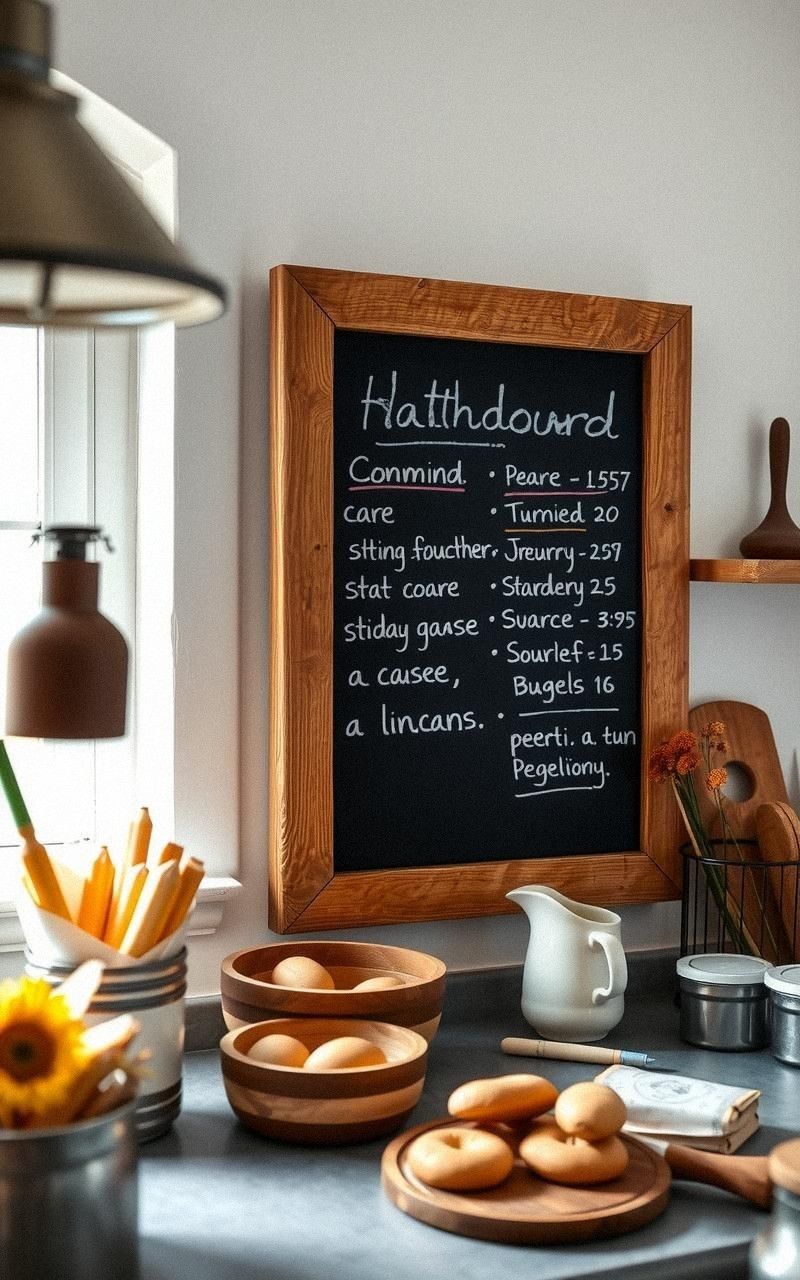 Hatthdourd
Conmind.
care
stting foucther.
stat coare
stiday ganse
a causee,
a lincans.
• Peare - 1557
• Tumied 20
• Jreurry - 259
• Stardery 25
• Suarce - 3:95
• Sourlef = 15
Bugels 16
• peerti. a tun
Pegeliony.